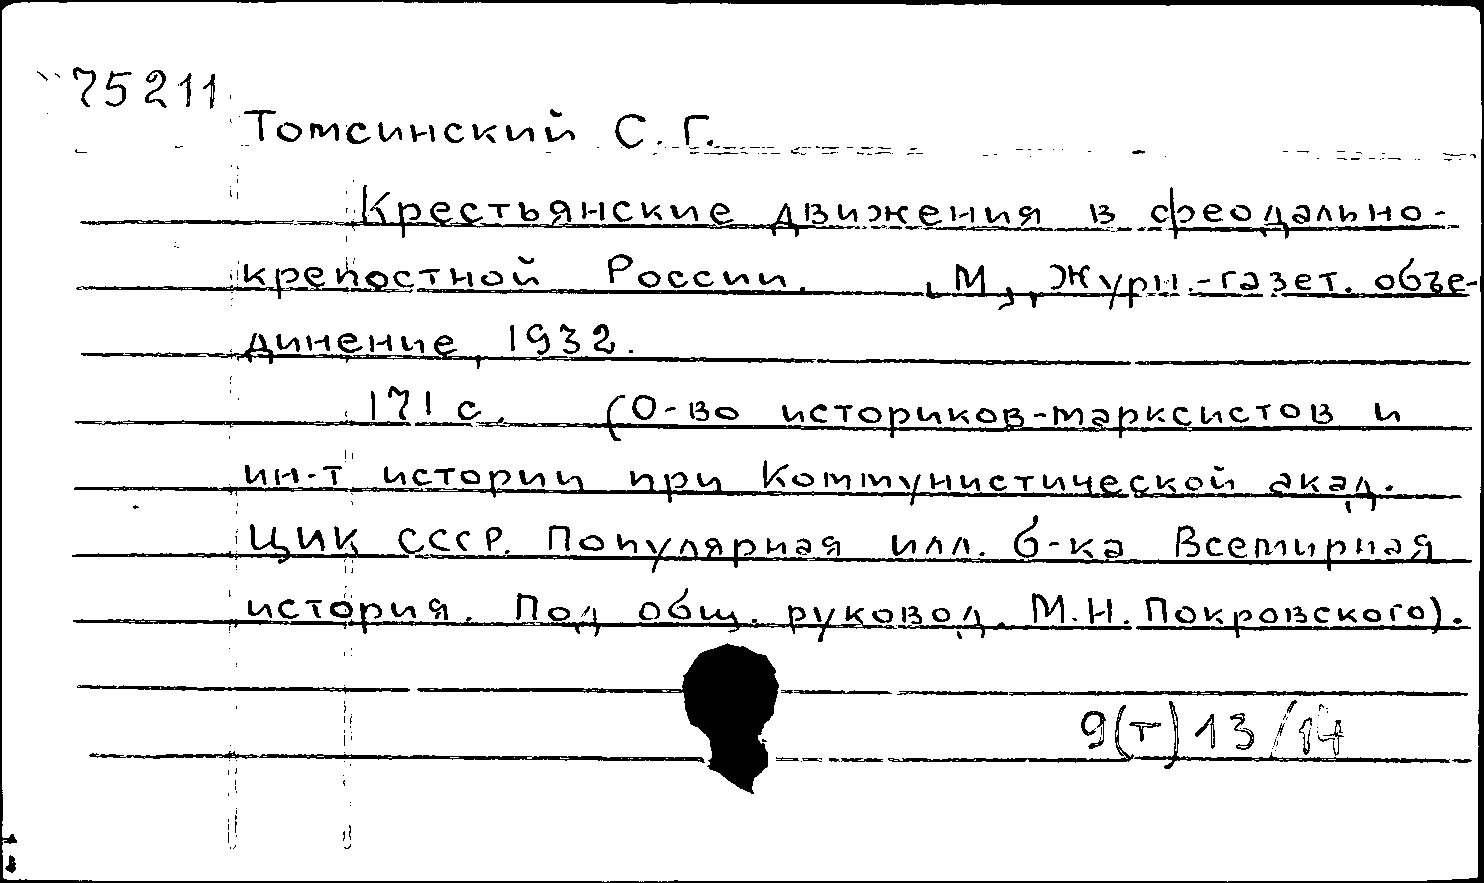 75211
Томсинский С. Г.
Крестьянские движения в феодально-
крепостной России. , М,, Журн.-газет. объе-
динение, 1932.
171 с. (О-во историков-марксистов и
ин-т истории при Коммунистической акад.
ЦИК СССР. Популярная илл. б-ка Всемирная
история. Под общ. руковод. М.Н. Покровского).
9(т)13/14